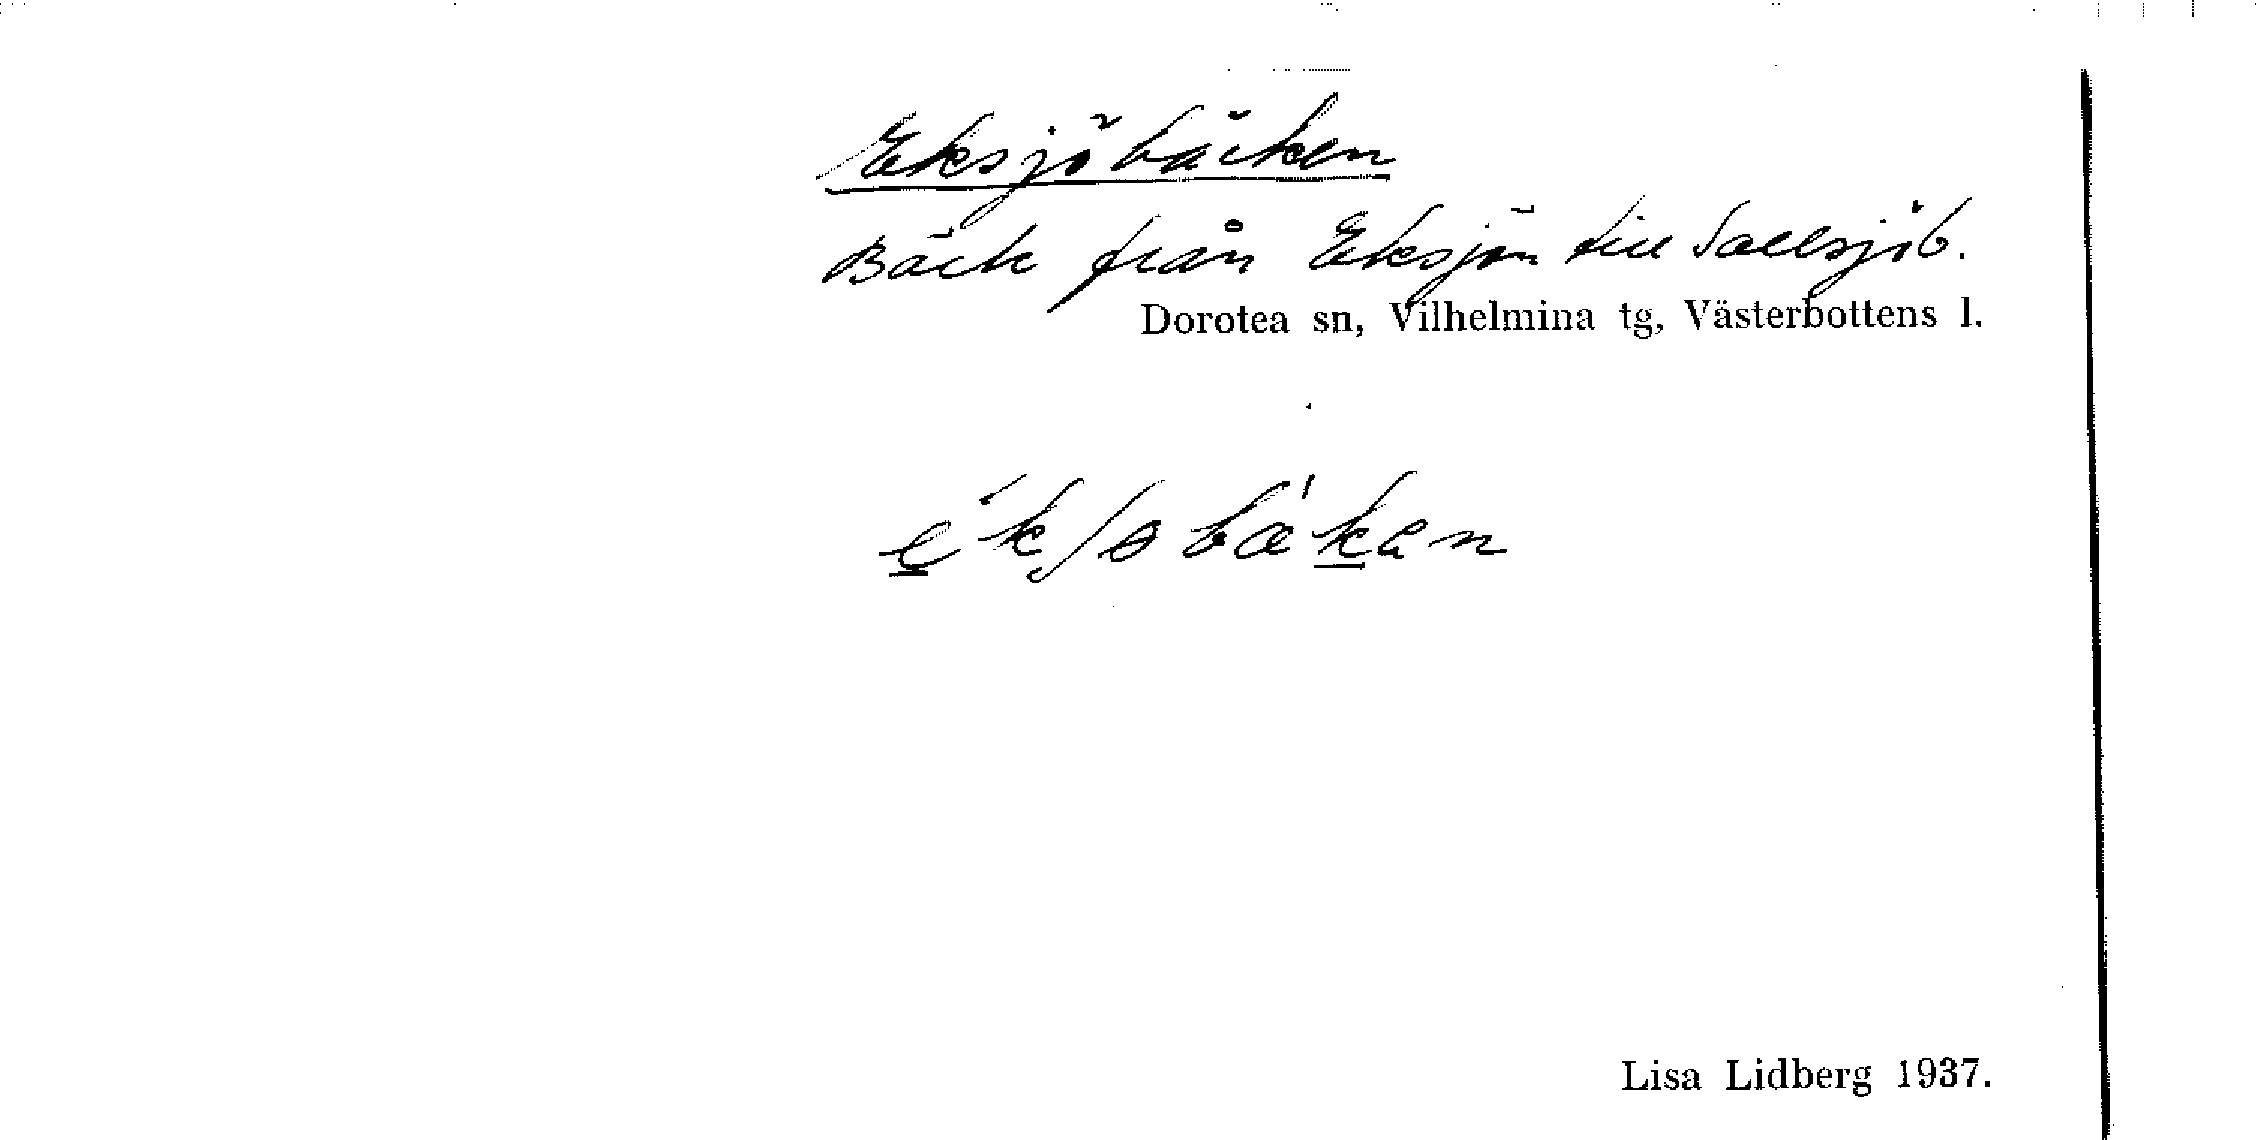 Eksjöbäcken
Bäck från Eksjön till Sallsjöb.
Dorotea sn, Vilhelmina tg, Västerbottens l.
Lisa Lidberg 1937.